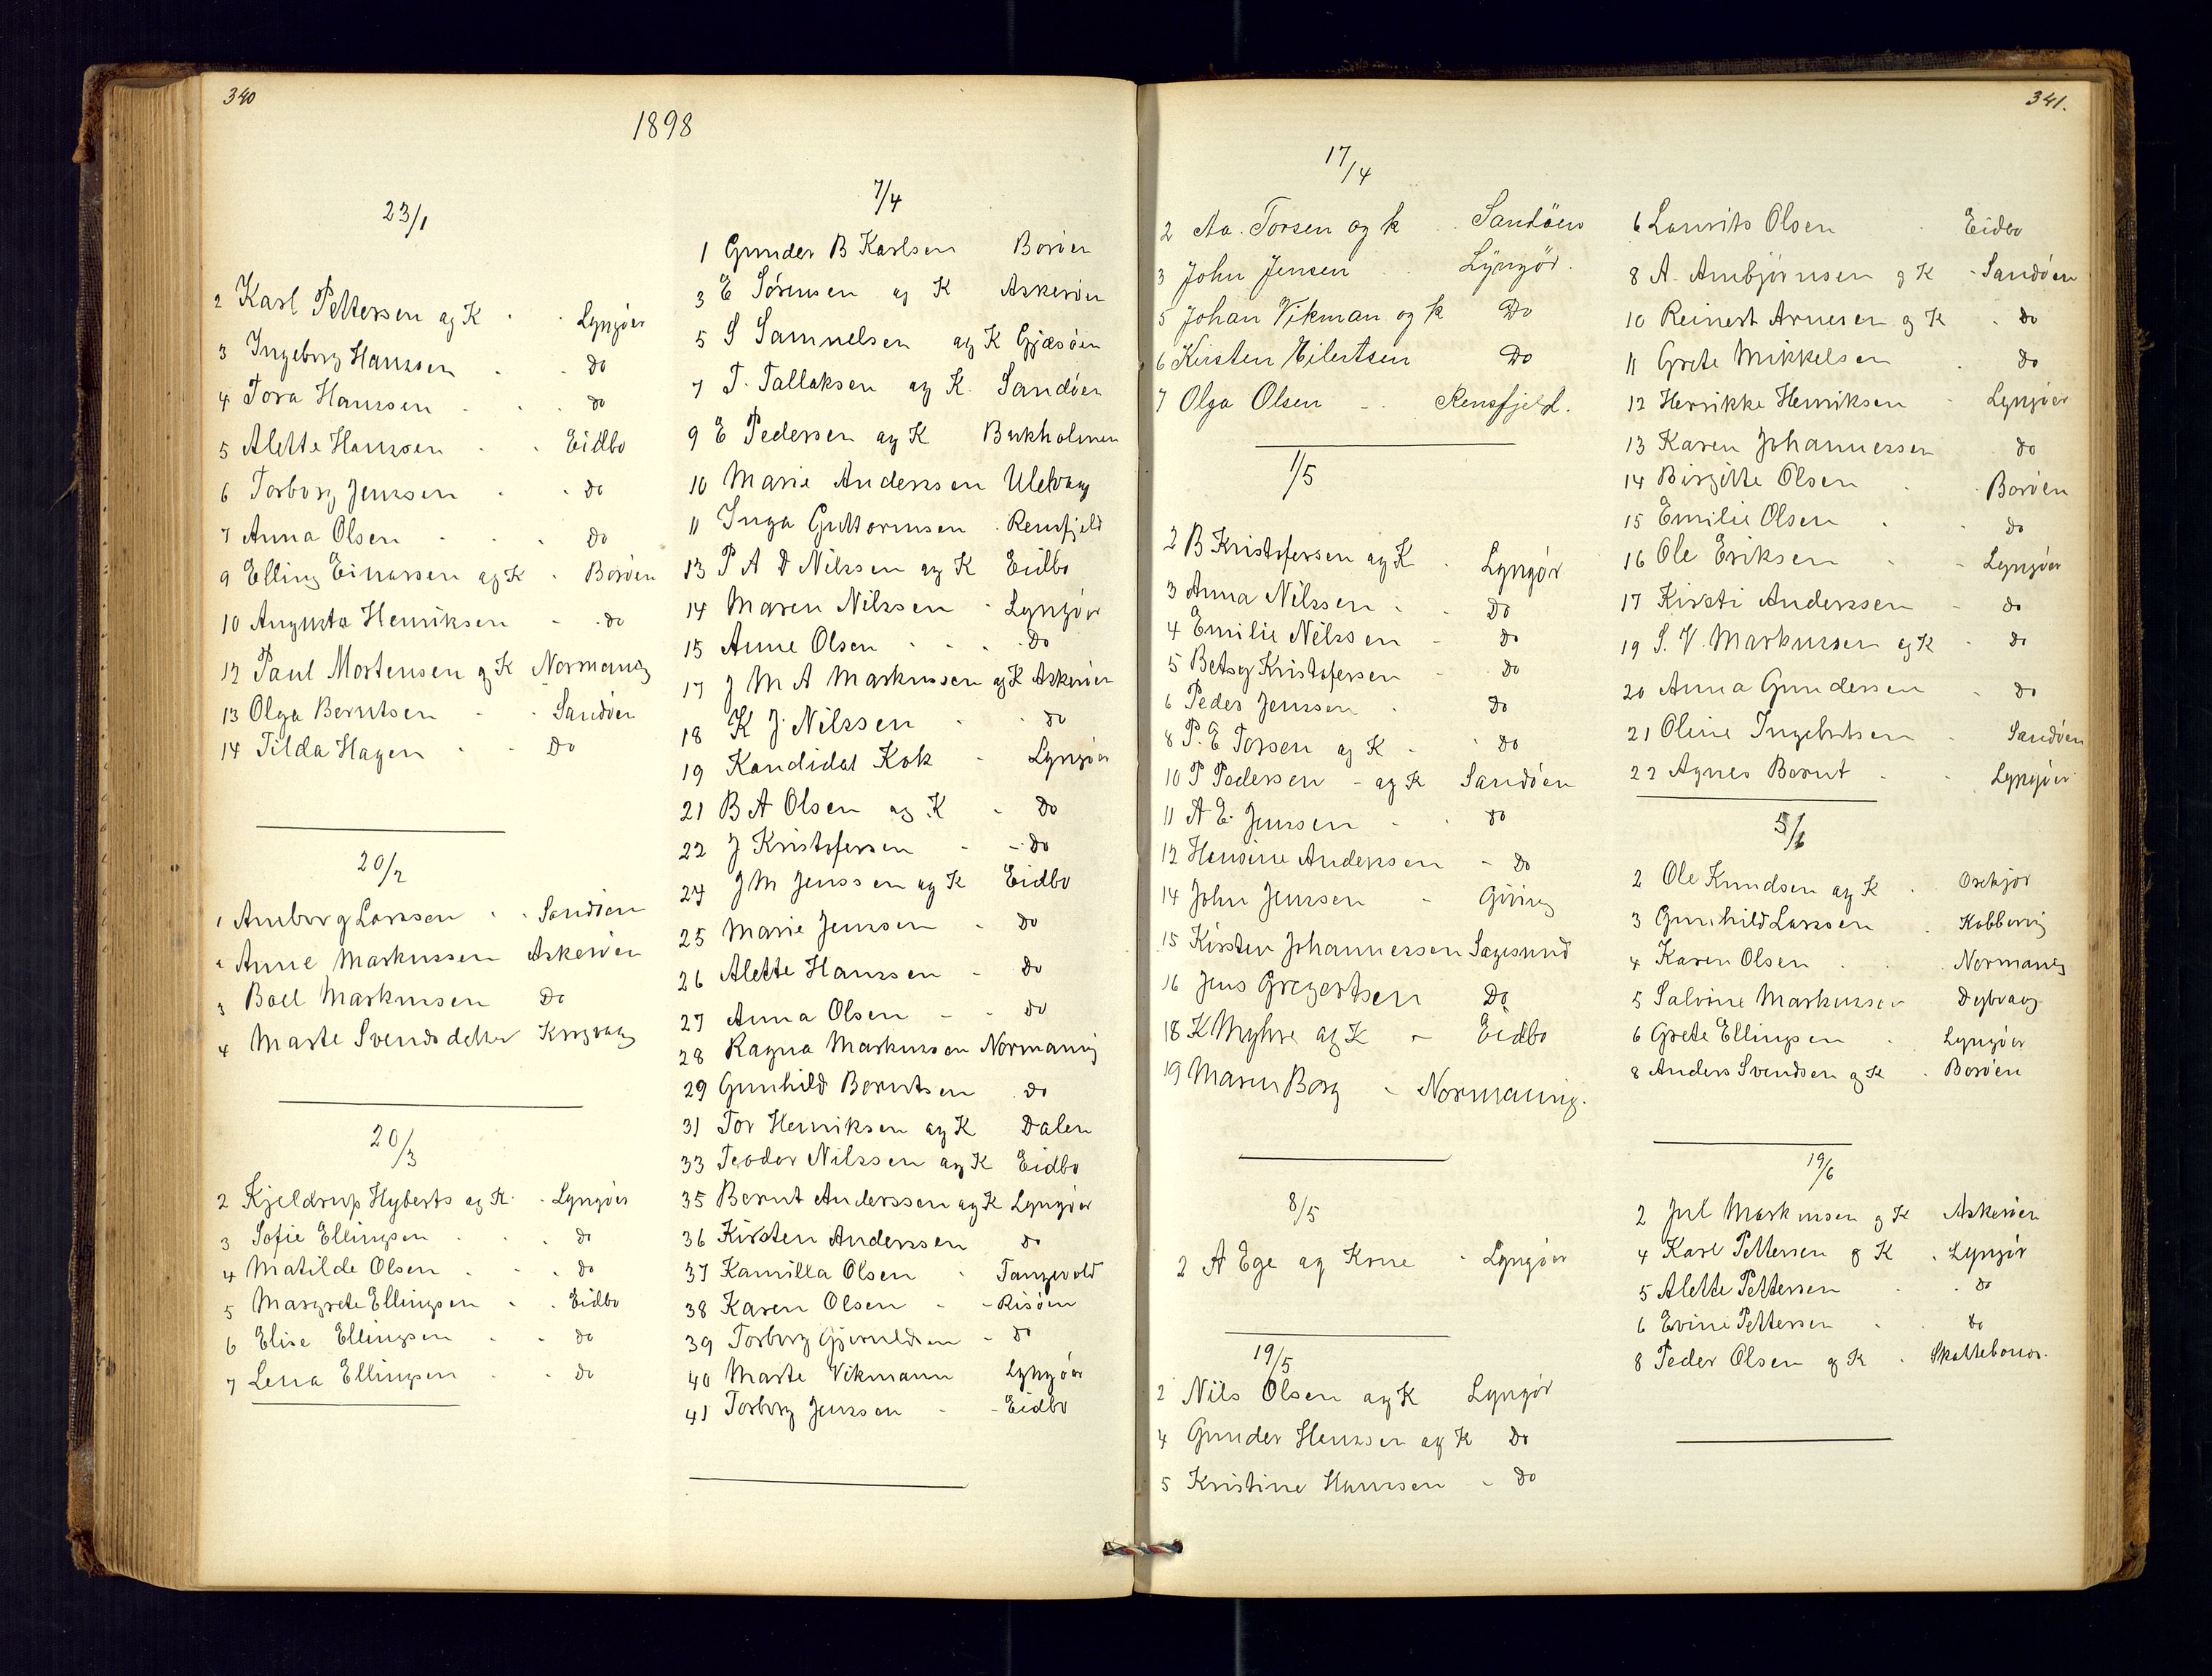 340
1898
23/1
2 Karl Pettersen og K - - Lyngøer
3 Ingeborg Hanssen - - do
4 Tora Hanssen - - do
5 Alette Hanssen - - Eidbo
6 Torborg Jenssen - - do
7 Anna Olsen - - - do
9 Elling Einarssen og K - Borøen
10 Augusta Henriksen - - do
12 Paul Mortensen og K Normanvig
13 Olga Berntsen - - Sandøen
14 Tilda Hagen - - Do
20/2
1 Amborg Larssen - - Sandøen
2 Anne Markussen Askerøen
3 Boel Markussen Do
4 Marte Svendsdetter Krogvaag
20/3
2 Kjeldrup Hyberts og K - - Lyngøer
3 Sofie Ellingsen - - - do
4 Matilde Olsen - - - do
5 Margrete Ellingsen - - Eidbo
6 Elise Ellingsen - - do
7 Lena Ellingsen - - do
7/4
1 Gunder B Karlsen Borøen
3 E Sørensen og K Askerøen
5 S Samuelsen og K Gjæsøen
7 T. Tallaksen og K. Sandøen
9 E Pedersen og K Birkholmen
10 Marie Anderssen Ulevaag
11 Inga Guttormsen - Rensfjeld
13 P A D Nilssen og K Eidbo
14 Maren Nilssen - Lyngøer
15 Anne Olsen - - - Do
17 J M A Markussen og K Askerøen
18 K J. Nilssen - - do
19 Kandidat Kok - Lyngøer
21 B A Olsen og K - Do
22 J Kristofersen - - Do
24 J M Jenssen og K Eidbo
25 Marie Jenssen - Do
26 Alette Hanssen - Do
27 Anna Olsen - - do
28 Ragna Markussen Normanvig
29 Gunhild Berntsen do
31 Tor Henriksen og K Dalen
33 Teodor Nilssen og K Eidbo
35 Bernt Anderssen og K Lyngøer
36 Kirsten Anderssen do
37 Kamilla Olsen - Tangevold
38 Karen Olsen - - Risøen
39 Torborg Gjeruldsen - do
40 Marte Vikmann Lyngøer
41 Torborg Jenssen - - Eidbo
341.
17/4
2 Aa. Torsen og k Sandöens
3 John Jensen - - Lÿngör.
5 Johan Vikman og k Do
6 Kirsten Eilertsen Do
7 Olga Olsen - - Rensfjeld.
1/5
2 B Kristofersen og K - Lyngør
3 Anna Nilssen - - Do
4 Emilie Nilssen - Do
5 Betsy Kristofersen - do
6 Peder Jenssen - Do
8 P. E Torsen og K - - Do
10 P Pedersen - og K Sandøen
11 A E. Jenssen - - do
12 Hensine Anderssen - Do
14 John Jenssen - Giving
15 Kirsten Johannessen Sagesund
16 Jens Gregertsen Do
18 K Myhre og K - Eidbo
19 Maren Borg - Normanvig.
8/5
2 A Ege og Kone - Lyngøer
19/5
2 Nils Olsen og K Lyngør
4 Gunder Henssen og K Do
5 Kristine Hanssen - do
6 Laurits Olsen - Eidbo
8 A. Ambjørnsen og K - Sandøen
10 Reinert Arnesen og K - do
11 Grete Mikkelsen - do
12 Henrikke Henriksen - Lyngøer
13 Karen Johannessen do
14 Birgitte Olsen - - Borøen
15 Emilie Olsen - - do
16 Ole Eriksen - - Lyngøer
17 Kirsti Anderssen - do
19 S. V. Markussen og K - do
20 Anna Gundersen - do
21 Oline Ingebritsen - Sandøen
22 Agnes Bernt - - Lyngøer
5/6
2 Ole Knudsen og K -
3 Gunhild Larssen - Kobbervig
4 Karen Olsen - - Normanvig
5 Salvine Markussen Dybvaag
6 Grete Ellingsen - Lyngøer
8 Anders Svendsen og K - Borøen
19/6
2 Jul Markussen og K Askerøen
4 Karl Pettersen og K - Lyngør
5 Alette Pettersen - - do
6 Evine Pettersen - - do
8 Peder Olsen og K -